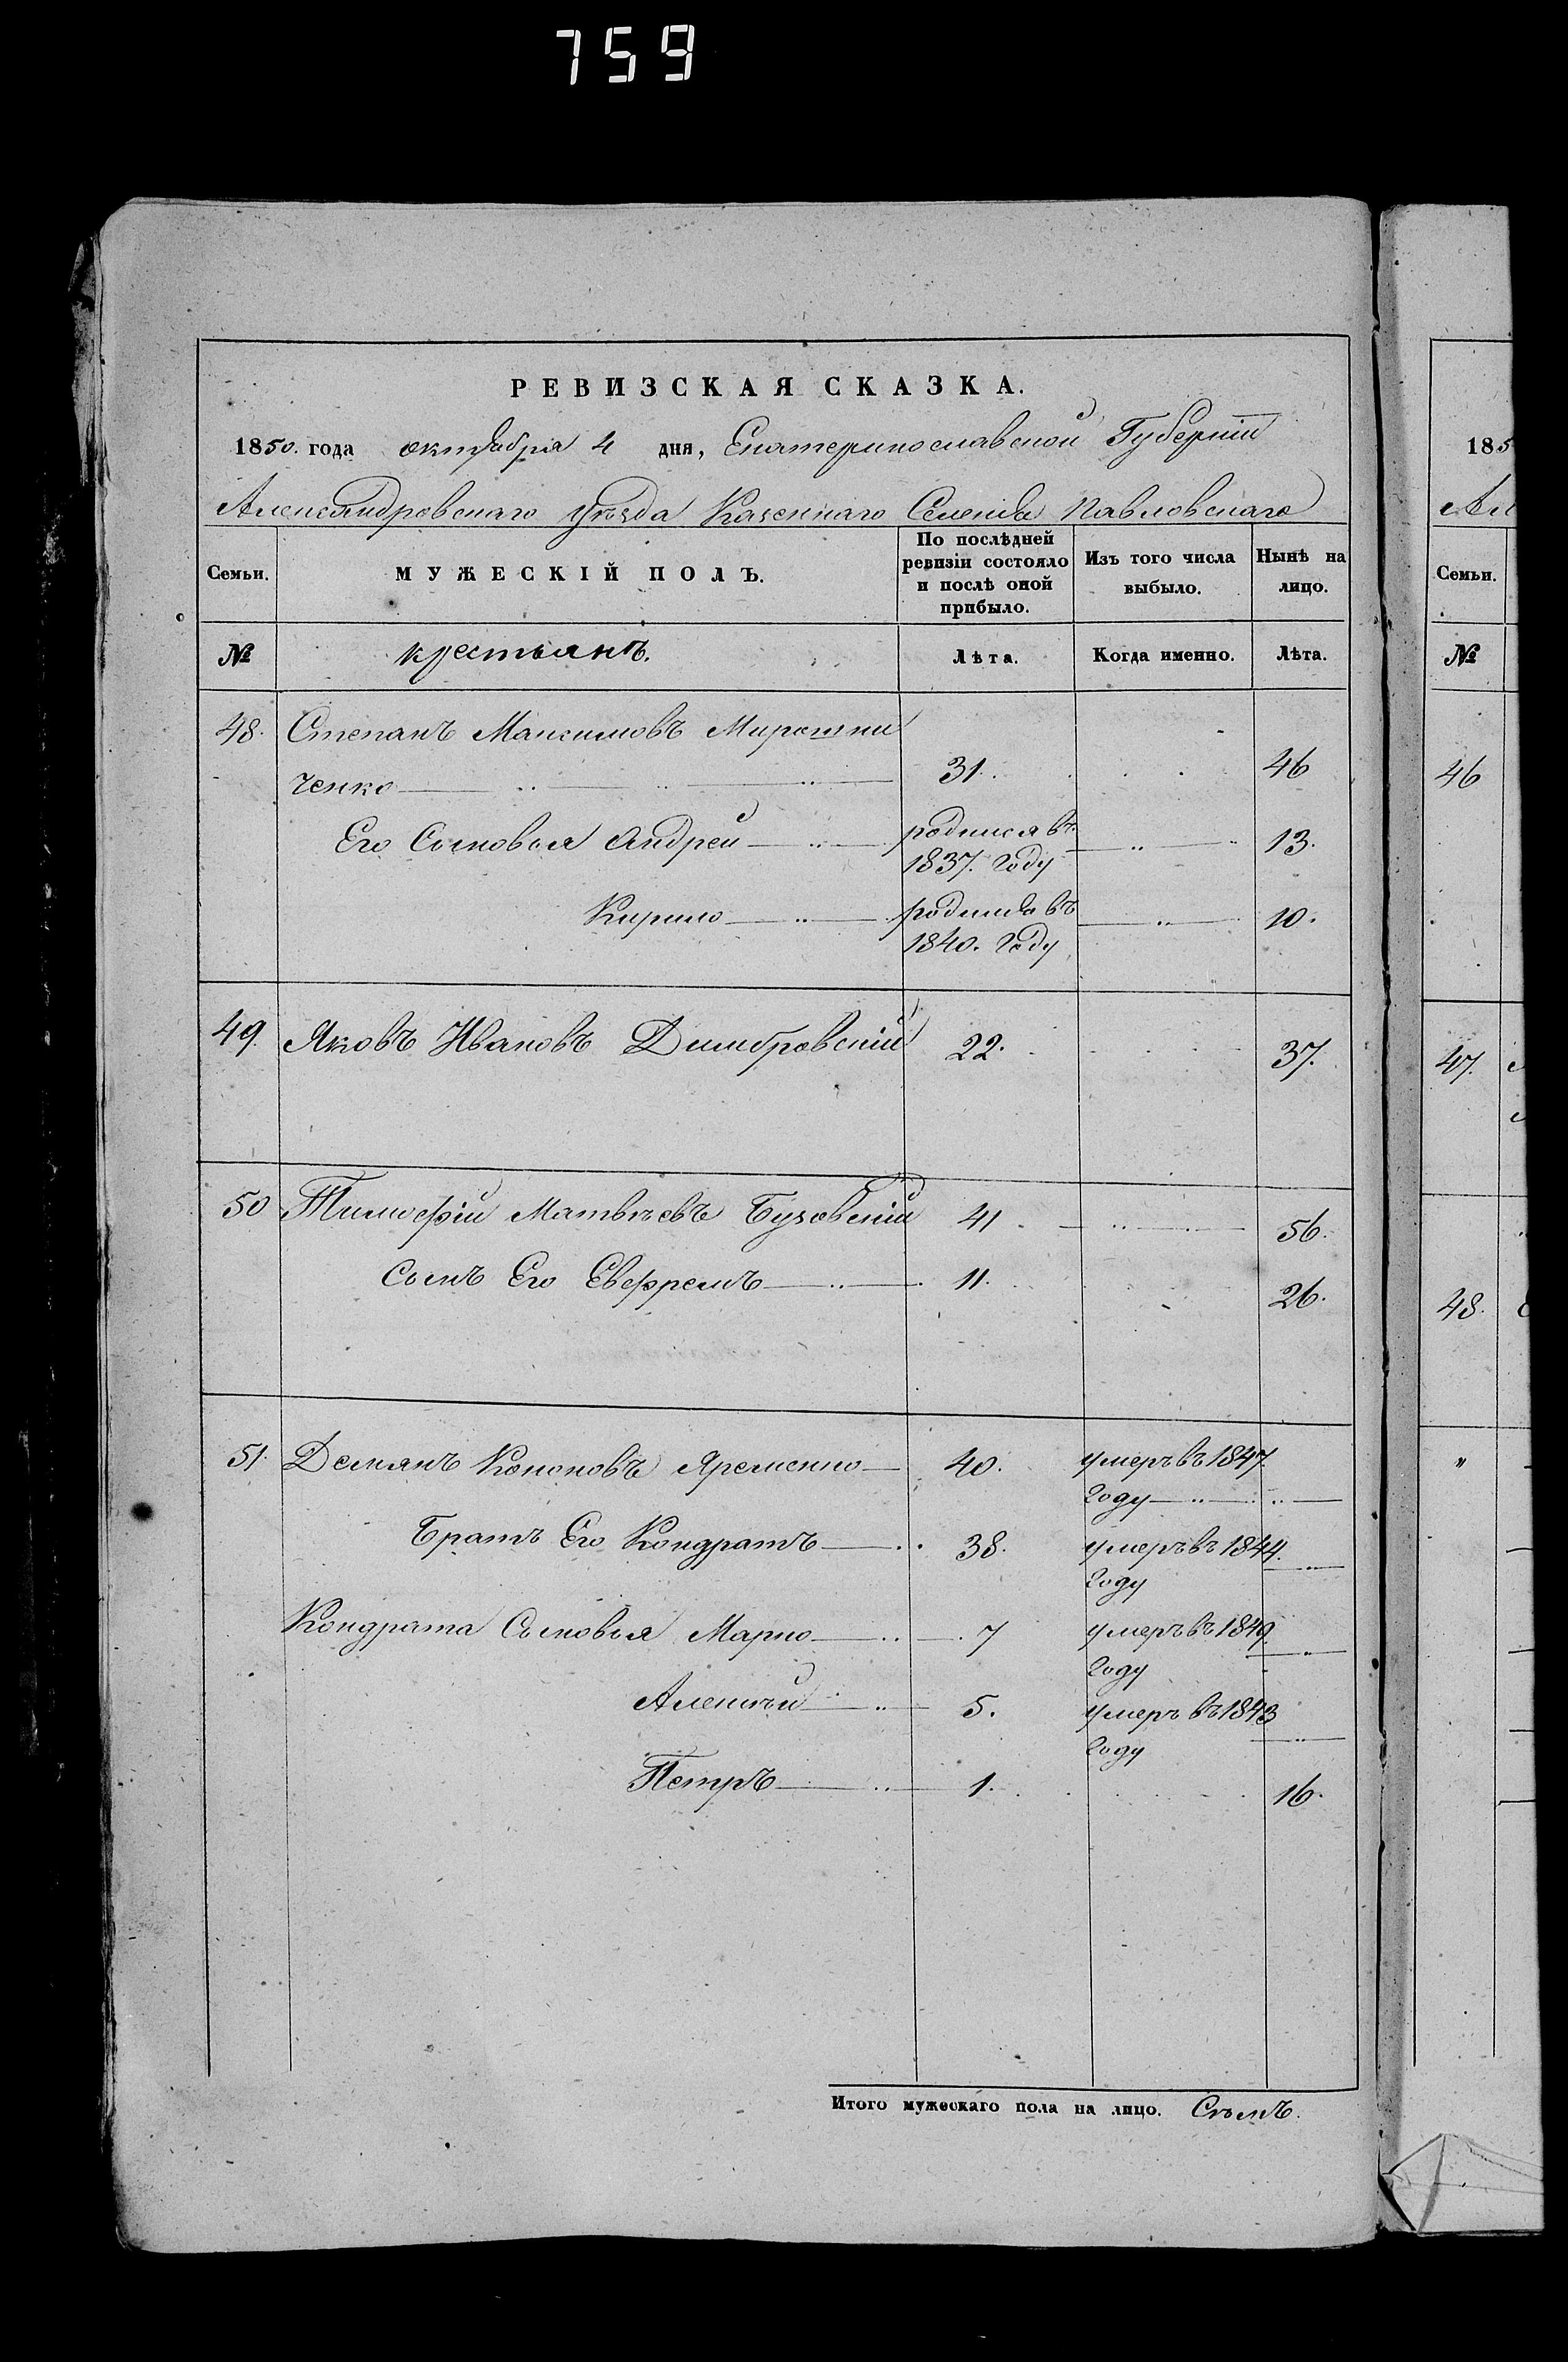 759
РЕВИЗСКАЯ СКАЗКА.
1850. года октября 4 дня, Екатеринославской Губерніи
Александровскаго уѣзда Казеннаго Селенія Павловскаго
Семьи. МУЖЕСКІЙ ПОЛЪ. По послѣдней ревизіи состояло и послѣ оной прибыло. Изъ того числа выбыло. Нынѣ на лицо.
№ крестьянъ. Лѣта. Когда именно. Лѣта.
48. Степанъ Максимовъ Мирошни
ченко 31. 46
Его Сыновья Андрей родился въ 13.
1837. году
Кирило родился въ 10.
1840. году
49. Яковъ Ивановъ Димбровскій 22. 37.
50 Тимофій Матвѣевъ Бузовскій 41 56.
Сынъ Его Евфремъ 11. 26.
51. Демянъ Кононовъ Яременко 40. умеръ въ 1847.
году
Братъ Его Кондратъ 38. умеръ въ 1844.
году
Кондрата Сыновья Марко 7 умеръ въ 1849.
году
Алексѣй 5. умеръ въ 1843
году
Петръ 1. 16.
Итого мужескаго пола на лицо. Семь.
185
Ал
Семьи.
№
46
47.
48.
"